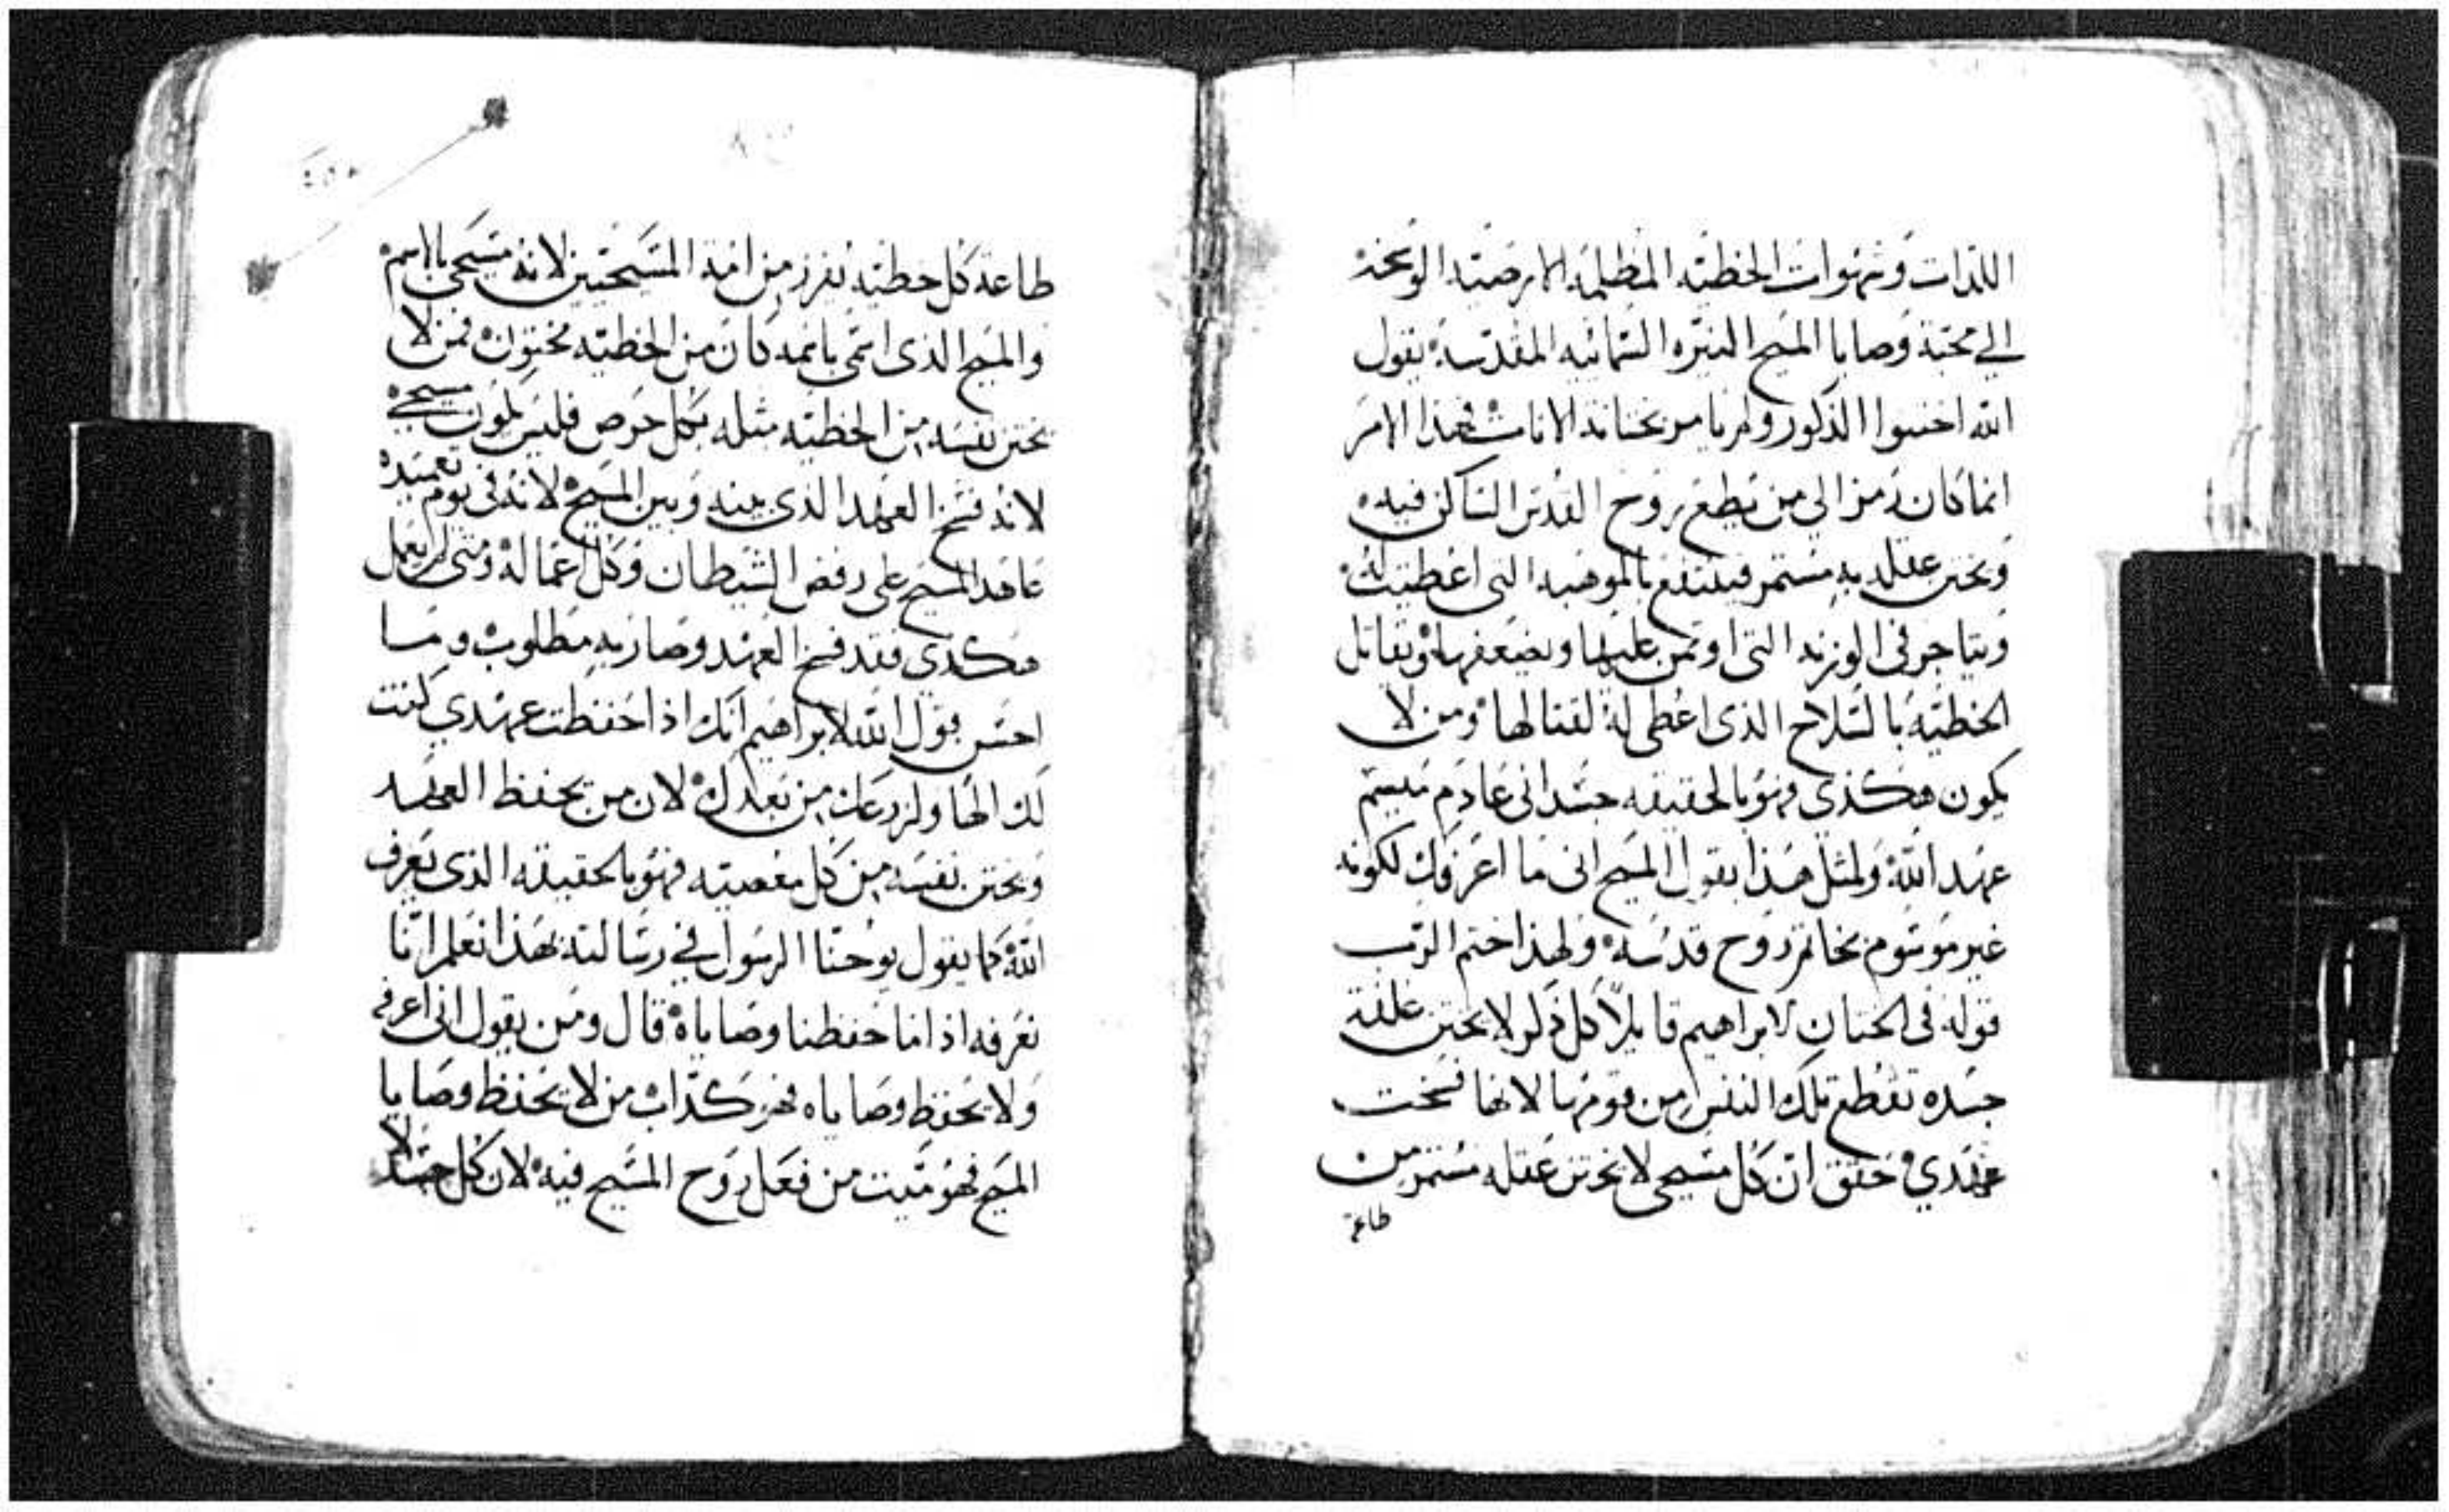 اللذات وشهوات الخطيه المظلمه الارضيه الوسخه
الي محبة وصايا المسيح النيره السمائيه المقدسه يقول
الله اختنوا الذكور ولم يامر بختانة الاناث فهذا الامر
انما كان رمز الي من يطيع روح القدس الساكن فيه
ويختن عقله به مستمر فينتفع بالموهبه التى اعطيت له
ويتاجر فى الوزنه التى اوتمن عليها ويضعفها ويقاتل
الخطيه بالسلاح الذى اعطى له لقتالها ومن لا
يكون هكذى فهو بالحقيقه جسدانى عادم ميسم
عهد الله ولمثل هذا يقول المسيح انى ما اعرفك لكونه
غير موسوم بخاتم روح قدسه ولهذا ختم الرب
قوله فى الختان لابراهيم قايلاً كل ذكر لا يختن غلفة
جسده تقطع تلك النفس من قومها لانها فسخت
عهدي حقق ان كل مسيحى لا يختن عقله مستمر من
طاعة
طاعة كل خطيه يفرز من امة المسيحيين لانه مسيحى بالاسم
والمسيح الذى اسمى باسمه كان من الخطيه مختون فمن لا
يختن نفسه من الخطيه مثله بكل حرص فليس يكون مسيحي
لانه فسخ العهد الذى بينه وبين المسيح لانه فى يوم تعميده
عاهد المسيح على رفض الشيطان وكل اعماله ومتى لم يعمل
هكذى فقد فسخ العهد وصار به مطلوب وما
احسن قول الله لابراهيم انك اذا حفظت عهدي كنت
لك الها ولزرعك من بعدك لان من يحفظ العهد
ويختن نفسه من كل معصيه فهو بالحقيقه الذى يعرف
الله كما يقول يوحنا الرسول في رسالته بهذا نعلم اننا
نعرفه اذ اما حفظنا وصاياه قال ومن يقول انى اعرفه
ولا يحفظ وصاياه فهو كذاب من لا يحفظ وصايا
المسيح فهو ميت من فعل روح المسيح فيه لان كل جسد لا